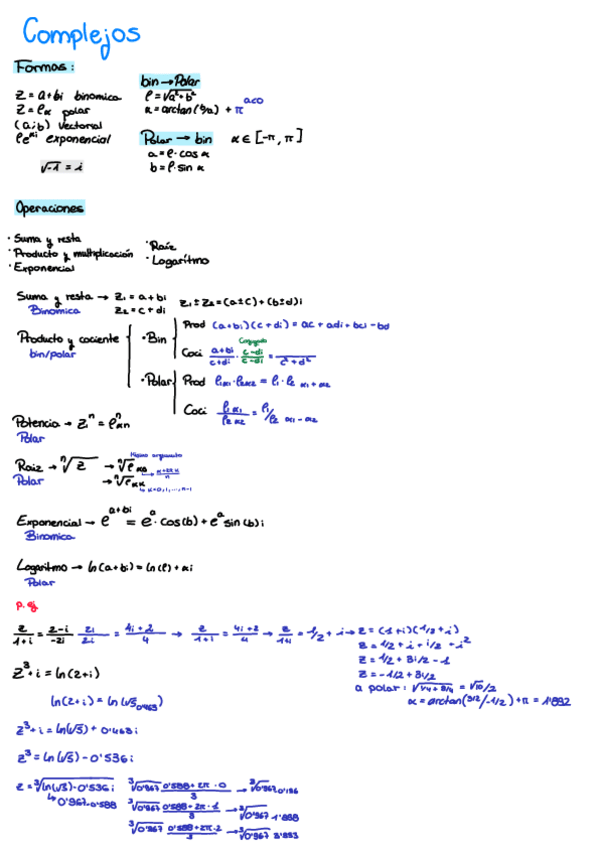 Complejos
Formas:
z = a+bi binomica
z = ρα polar
(a;b) vectorial
ρe^αi exponencial
√-1 = i
bin → Polar
ρ = √a²+b²
α = arctan(b/a) + π
Polar → bin α ∈ [-π, π]
a = ρ · cos α
b = ρ · sin α
Operaciones
· Suma y resta
· Producto y multiplicación
· Exponencial
· Raíz
· Logaritmo
Suma y resta → z₁ = a+bi z₁ ± z₂ = (a±c) + (b±d)i
Binomica z₂ = c + di
Producto y cociente
bin/polar
· Bin
Prod (a+bi)(c+di) = ac + adi + bci - bd
Conjugado
Coci a+bi/c+di · c-di/c-di = /c²+d²
· Polar
Prod ρ₁α₁ · ρ₂α₂ = ρ₁ · ρ₂ α₁+α₂
Coci ρ₁α₁/ρ₂α₂ = ρ₁/ρ₂ α₁-α₂
Potencia → zⁿ = ρⁿαn
Polar
Raiz → ⁿ√z
Polar
Exponencial → e^a+bi = e^a · cos(b) + e^a sin(b)i
Binomica
Logaritmo → ln(a+bi) = ln(ρ) + αi
Polar
p. ej
z/1+i = z-i/-2i · 2i/2i = 4i+2/4 → z/1+i = 4i+2/4 → z/1+i = 1/2 + i → z = (1+i)(1/2+i)
z = 1/2 + i + i/2 + i²
z = 1/2 + 3i/2 - 1
z = -1/2 + 3i/2
a polar: √1/4+9/4 = √10/2
α = arctan(3/2/-1/2) + π = 1'892
z³+i = ln(2+i)
ln(2+i) = ln(√5 0'463)
z³+i = ln(√5) + 0'463i
z³ = ln(√5) - 0'536i
z = ³√ln(√5)-0'536i
↳ 0'967 -0'588
³√0'967 0'588+2π·0/3 → ³√0'967 0'196
³√0'967 0'588+2π·1/3 → ³√0'967 1'888
³√0'967 0'588+2π·2/3 → ³√0'967